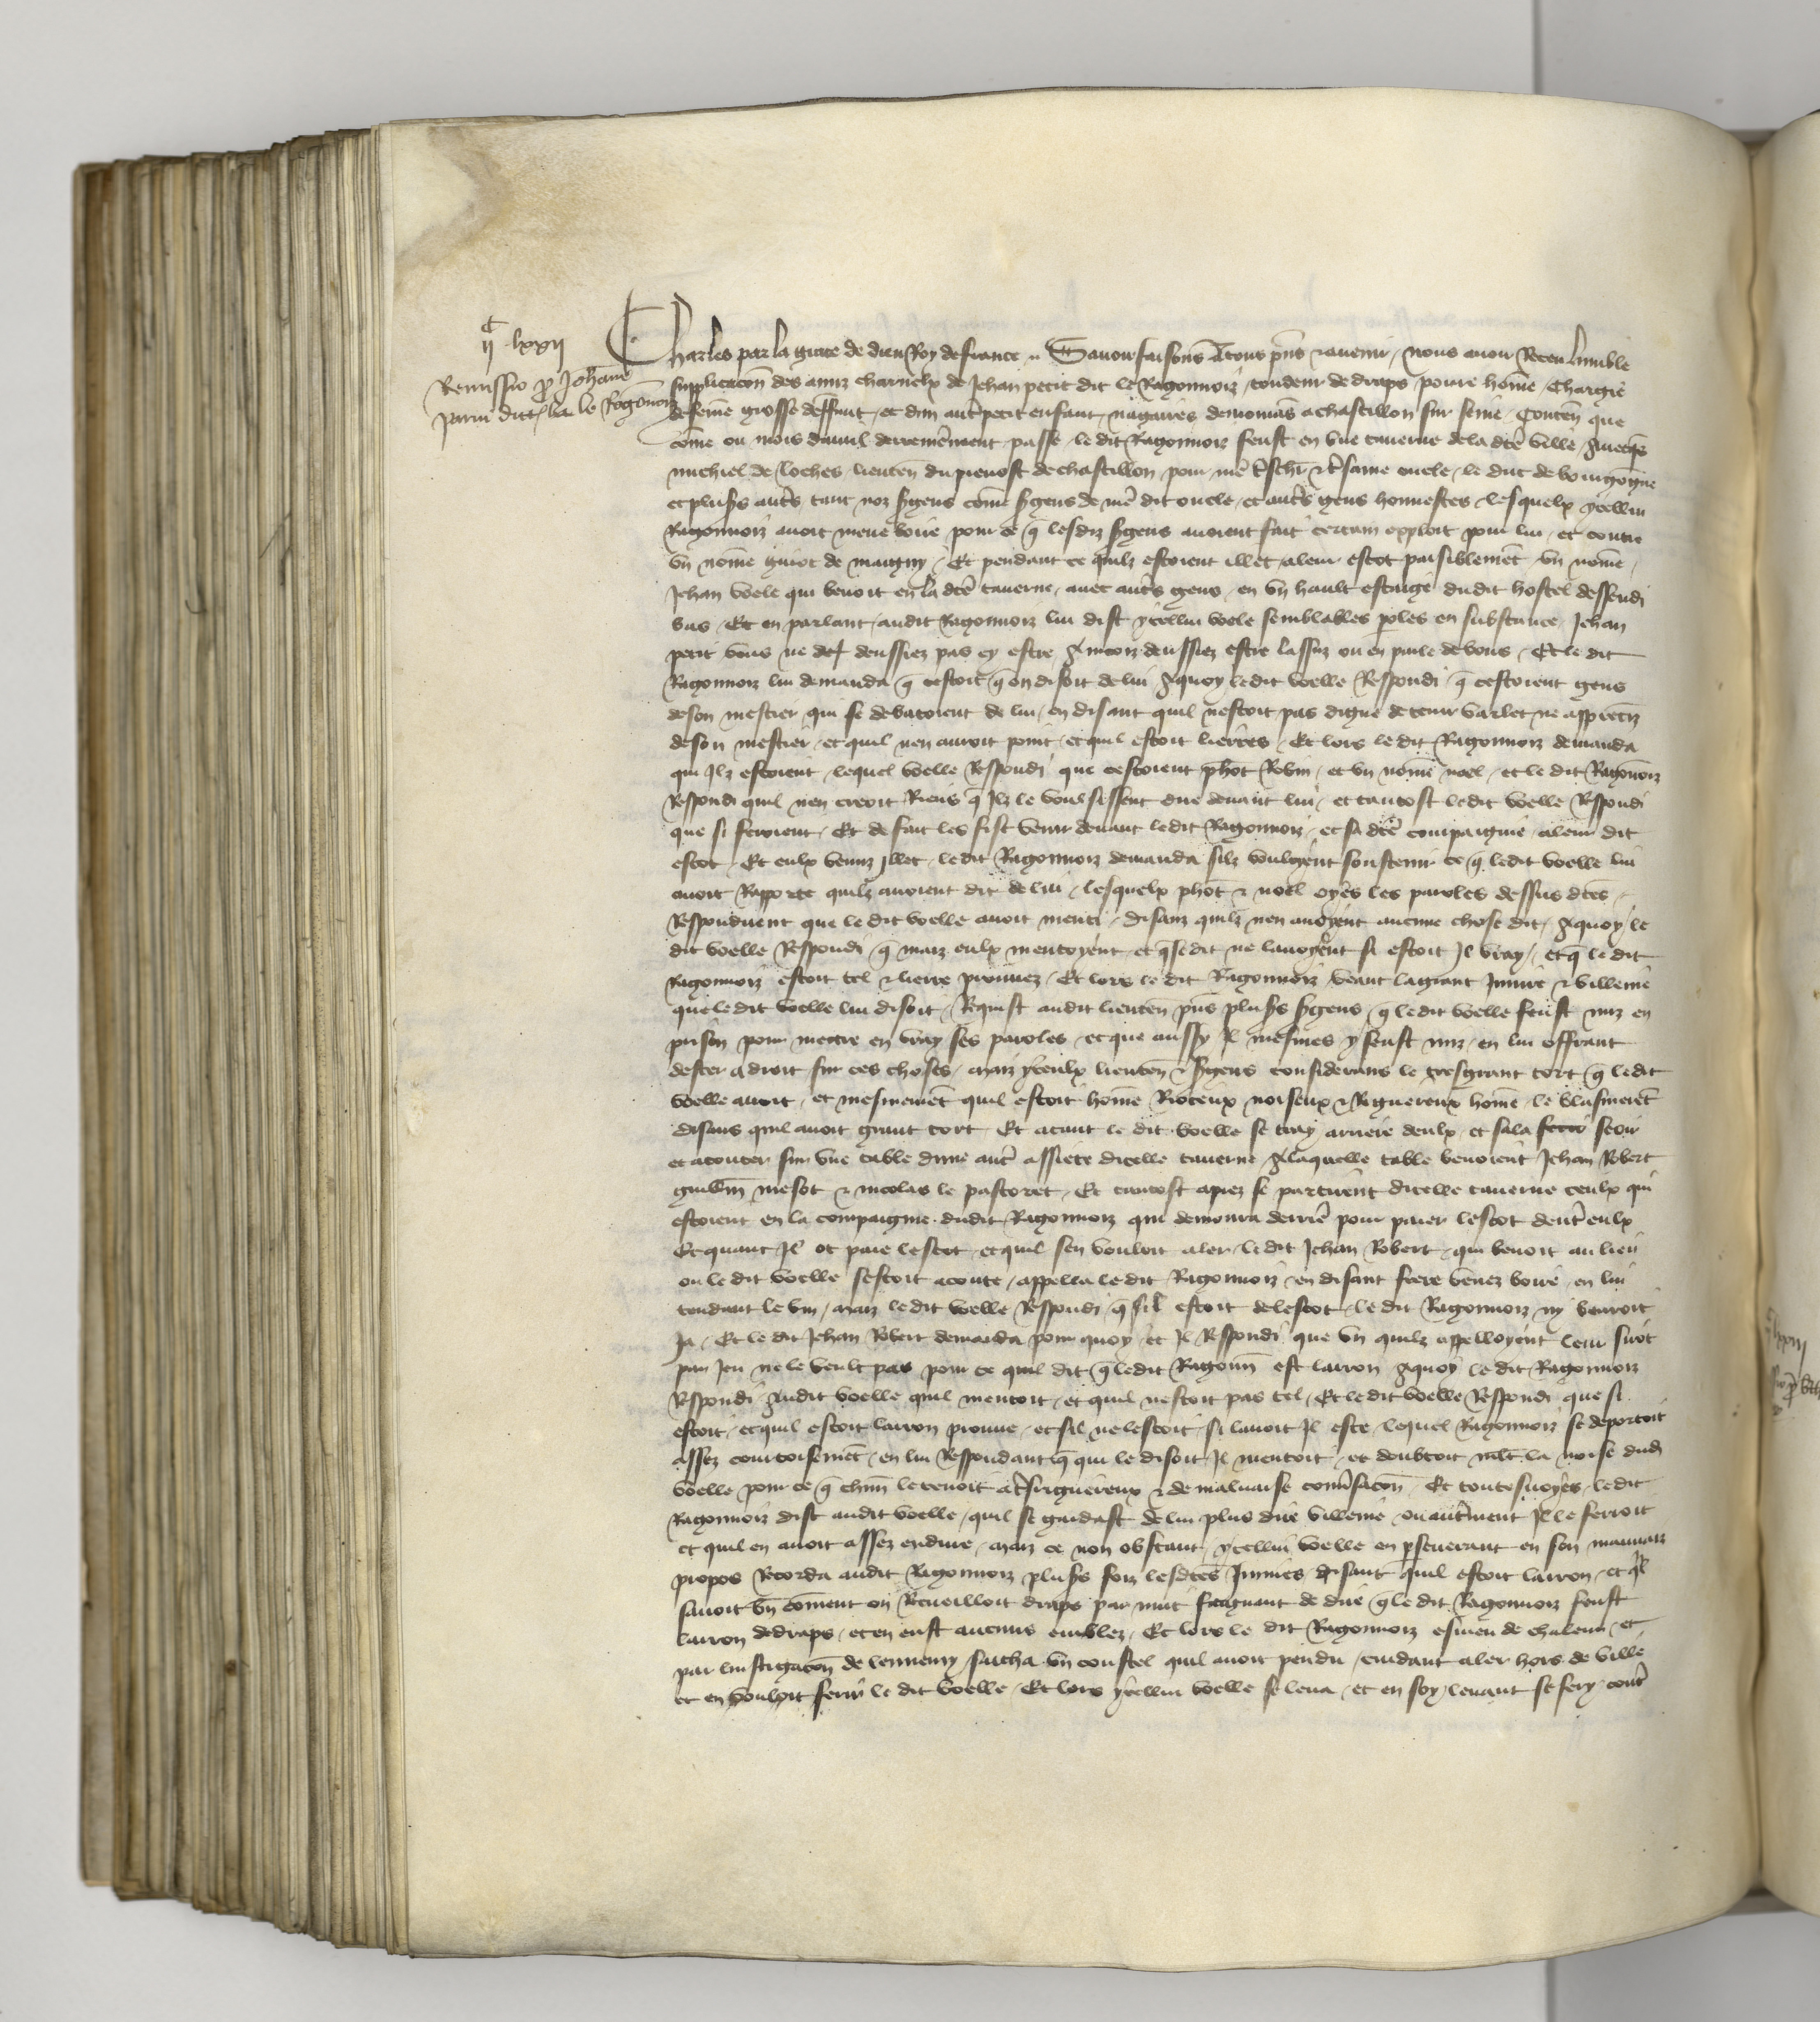 ii c lxxii
Remissio p Johanne
parvi dicto le Ragonnoiz
Charles par la grace de dieu Roy de france Savoir faisons A tous pns et avenir nous avoir Receu lumble
supplicacon des amiz charnelx de Jehan petit dit le Ragonnoiz tondeur de draps povre home chargie
de feme grosse denffant et dun autre petit enfant nagaires demourans a chastillon sur seine Conten que
come ou mois davril derrenierement passe le dit Ragonnoiz feust en une taverne de la dce ville Avecqs
michiel de loches lieuten du prevost de chastillon pour nre tschr et tsame oncle le duc de bourgongne
et plusrs autrs tant noz sgens come sgens de nre dit oncle et autrs gens honnestes lesquelx ycellui
Ragonnoiz avoit mene boire pour ce q lesdiz sgens avoient fait certain exploit pour lui et contre
un nome guiot de maigny Et pendant ce quilz estoient illec a leur escot paisiblemet un nome
Jehan voele qui bevoit en la dce taverne avec autrs gens en un hault estaige dudit hostel dessendi
bas Et en parlant audit Ragonnoiz lui dist ycellui voele semblables poles en substance Jehan
petit vous ne deussiez pas cy estre Aincoiz deussiez estre lassuz ou en parle de vous Et le dit
Ragonnoiz lui demanda q cestoit q on disoit de lui Aquoy ledit voelle Respondi q cestoient gens
de son mestier qui se debatoient de lui en disant quil nestoit pas digne de tenir varlet ne apprentiz
de son mestier et quil nen auroit point et quil estoit lierres Et lors le dit Ragonnoiz demanda
qui Ilz estoient lequel voelle Respondi que cestoient phot Robin et un nome noel et le dit Ragonnoiz
Respondi quil nen creoit Riens q Ilz le voulsissent dire devant lui et tantost ledit voelle Rspondi
que si feroient Et de fait les fist venir devant ledit Ragonnoiz et sa dce compaignie a leur dit
escot Et eulx venuz Illec ledit Ragonnoiz demanda silz vouloient soustenir ce q ledit voelle lui
avoit Rapporte quilz avoient dit de lui lesquelx phot et noel oyes les paroles dessus dces
Respondirent que le dit voelle avoit menti disanz quilz nen avoyent aucune chose dit Aquoy le
dit voelle Respondi q maiz eulx mentoyent et q se dit ne lavoyent si estoit Il vray et q le dit
Ragonnoiz estoit tel et lierre prouvez Et lors le dit Ragonnoiz veant la grant Injure et villenie
que le dit voelle lui disoit Requist audit lieuten pns plusrs sgens q le dit voelle feust miz en
prison pour mectre en vray ses paroles et que aussy Il mesmes y feust miz en lui offrant
dester a droit sur ces choses maiz yceulx lieuten et sgens considerans le tresgrant tort q ledit
voelle avoit et mesmement quil estoit home Rioteux noiseux et Riguereux home le blasmeret
disans quil avoit grant tort Et atant le dit voelle se tray arriere deulx et sala seoir
et acouter sur une table dune autre assiete dicelle taverne A laquelle table bevoient Jehan Robert
guillm mesot et nicolas le pastoret Et tantost apres se partirent dicelle taverne ceulx qui
estoient en la compaignie dudit Ragonnoiz qui demoura derrie pour paier lescot dentr eulx
Et quant Il ot paie lescot et quil sen vouloit aler le dit Jehan Robert qui bevoit au lieu
ou le dit voelle sestoit acoute appella le dit Ragonnoiz en disant frere venez boire en lui
tendant le vin maiz le dit voelle Respondi q sil estoit de lescot le dit Ragonnoiz ny bevroit
Ja Et le dit Jehan Robert demanda pour quoy et Il Rspondi que un quilz appelloyent leur
 ne le veult pas pour ce quil dit q ledit Ragonn est larron Aquoy le dit Ragonnoiz
Rspondi Audit voelle quil mentoit et quil nestoit pas tel Et le dit voelle Respondi que si
estoit et quil estoit larron prouve et sil ne lestoit si lavoit Il este lequel Ragonnoiz se deportoit
assez courtoisemet en lui Respondant q qui le disoit Il mentoit et doubtoit mlt la noise dud
voelle pour ce q chun le tenoit a tsriguereux et de malvaise convsacon Et toutesvoyes ledit
Ragonnoiz dist audit voelle quil se gardast de lui plus dire villenie ou autrment Il le ferroit
et quil en avoit assez endure maiz ce non obstant ycellui voelle en psevevant en son mauvaiz
propos Recorda audit Ragonnoiz plusrs foiz lesdces Injures disant quil estoit larron et ql
savoit bn coment on Recueilloit draps par nuit faignant de dire q le dit Ragonnoiz feust
larron de draps et en eust aucuns emblez Et lors le dit Ragonnoiz esmeu de chaleur et
par linstigacon de lennemy sacha un coustel quil avoit pendu cuidant aler hors de ville
et en voulsit ferir le dit voelle Et lors ycellui voelle se leva et en soy levant se fery contr